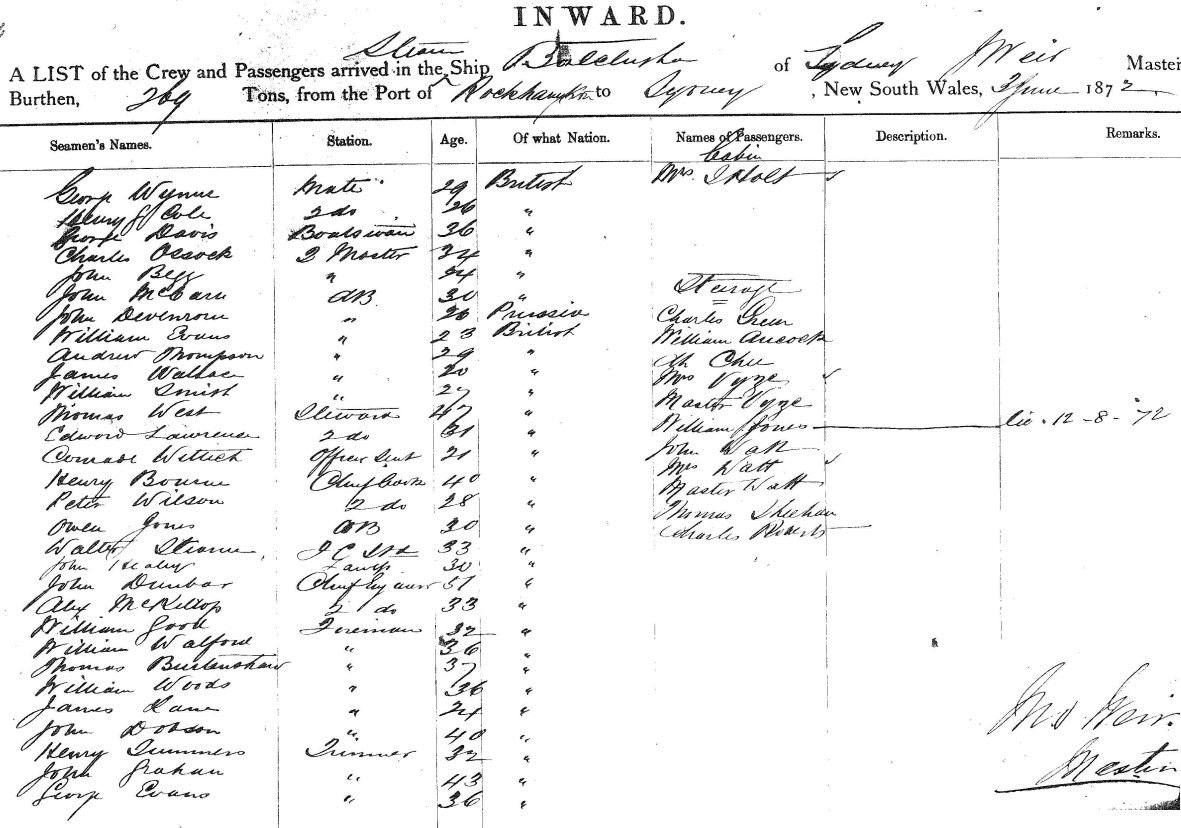 INWARD.
A LIST of the Crew and Passengers arrived in the Steam Ship Balclutha of Sydney J Weir Master
Burthen, 269 Tons, from the Port of Rockhampton to Sydney , New South Wales, June 187
Seamen's Names. Station. Age. Of what Nation. Names of Passengers. Description. Remarks.
Cabin
George Wynne Mate 29 British Mrs Holt
Henry J Cole 2 do 26 "
George Davis Boatswain 36 "
Charles 2 Master 34 "
John Begg " 24 "
John McCarn AB 30 " Steerage
John " 26 Prussia Charles Green
William Evans " 23 British William Ancock
Andrew Thompson " 29 " Ah Chee
James Wallace " 20 " Mrs Vyze
William Smith " 27 " Master Vyze
Thomas West Steward 47 " William Jones lic. 12-8-72
Edward Lawrence 2 do 31 " John Watt
Conrade Wittich Officer Svnt 21 " Mrs Watt
Henry Bourne Chief Cook 40 " Master Watt
Peter Wilson 2 do 28 " Thomas Sheehan
Owen Jones AB 30 " Charles Roberts
Walter 33 "
John Healey Lamps 30 "
John Dunbar Chief Engineer 51 "
Alex McKillop 2 do 33 "
William Good Fireman 32 "
William Walford " 36 "
Thomas Burtenshaw " 37 "
William Woods " 36 "
James Kane " 24 "
John Dobson " 40 "
Henry Summers Trimmer 32 "
John Graham " 43 "
George Evans " 36 "
Jno Weir
Master